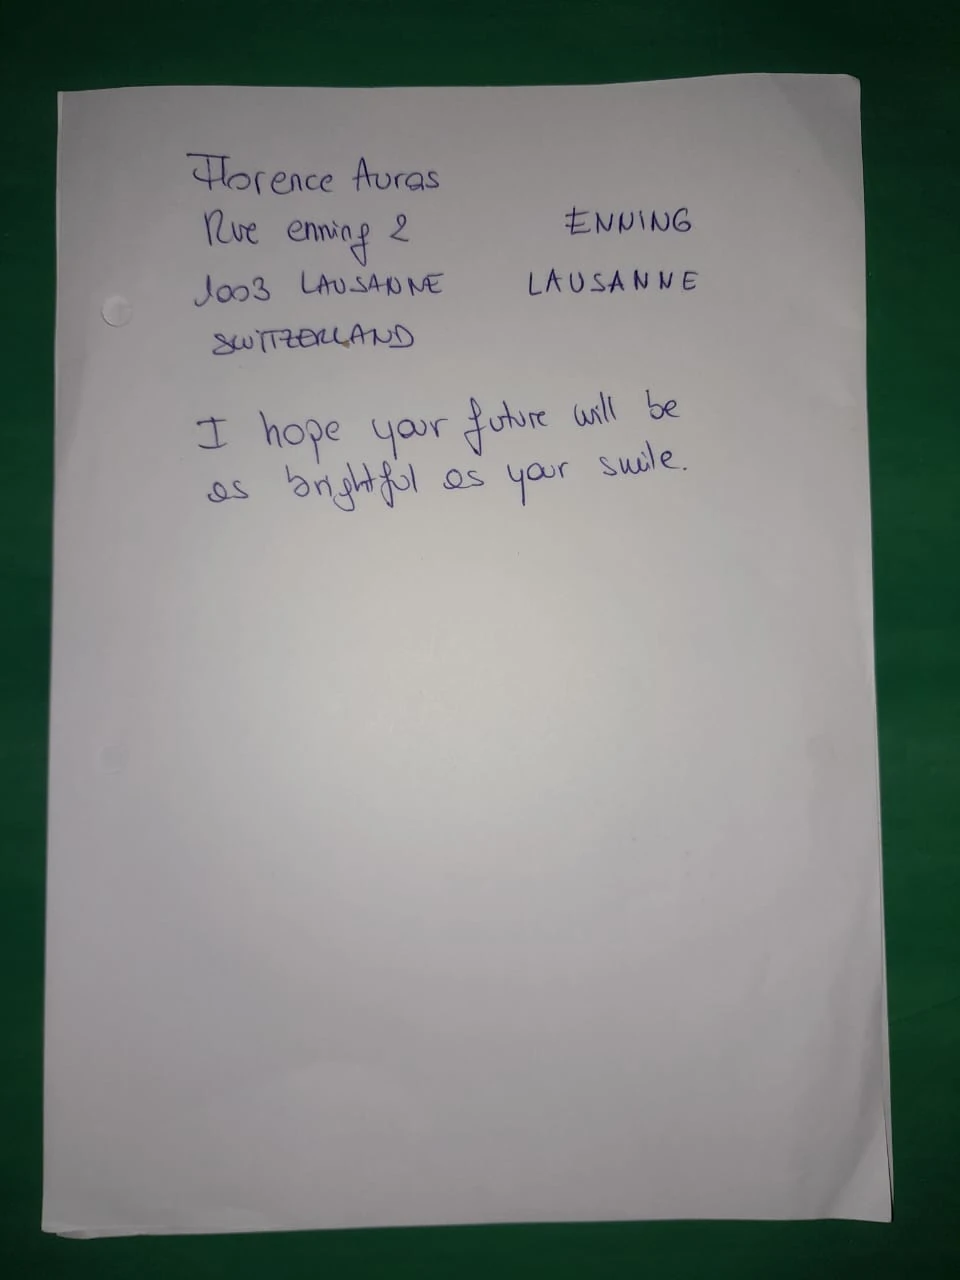 Florence Auras
Rue enning 2 ENNING
1003 LAUSANNE LAUSANNE
SWITZERLAND
I hope your future will be
as brightful as your smile.